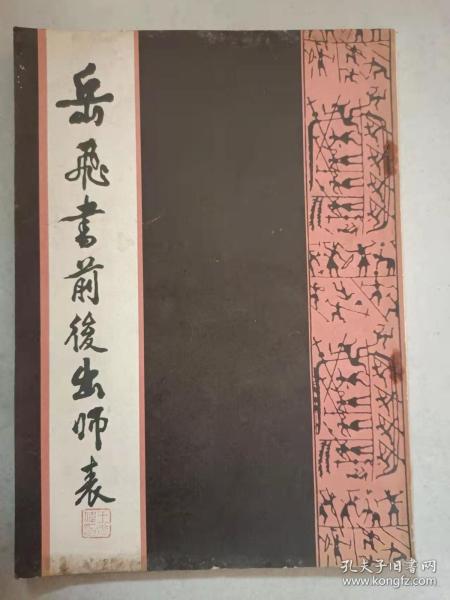 岳飛書前後出师表
孔夫子旧书网
www.kongfz.com